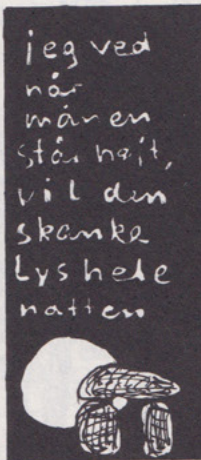 jeg ved
når
månen
står højt,
vil den
skænke
lys hele
natten